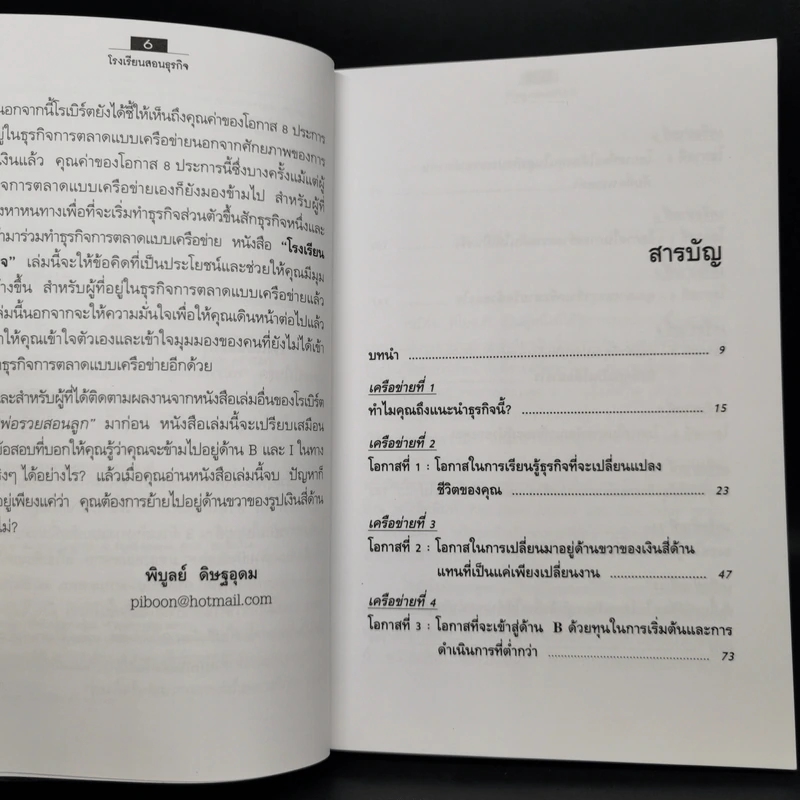 6
โรงเรียนสอนธุรกิจ
นอกจากนี้โรเบิร์ตยังได้ชี้ให้เห็นถึงคุณค่าของโอกาส 8 ประการ
อยู่ในธุรกิจการตลาดแบบเครือข่ายนอกจากศักยภาพของการ
เงินแล้ว คุณค่าของโอกาส 8 ประการนี้ซึ่งบางครั้งแม้แต่ผู้
กิจการตลาดแบบเครือข่ายเองก็ยังมองข้ามไป สำหรับผู้ที่
งหาหนทางเพื่อที่จะเริ่มทำธุรกิจส่วนตัวขึ้นสักธุรกิจหนึ่งและ
ข้ามาร่วมทำธุรกิจการตลาดแบบเครือข่าย หนังสือ “โรงเรียน
จ” เล่มนี้จะให้ข้อคิดที่เป็นประโยชน์และช่วยให้คุณมีมุม
ว้างขึ้น สำหรับผู้ที่อยู่ในธุรกิจการตลาดแบบเครือข่ายแล้ว
ล่มนี้นอกจากจะให้ความมั่นใจเพื่อให้คุณเดินหน้าต่อไปแล้ว
ให้คุณเข้าใจตัวเองและเข้าใจมุมมองของคนที่ยังไม่ได้เข้า
ธุรกิจการตลาดแบบเครือข่ายอีกด้วย
ละสำหรับผู้ที่ได้ติดตามผลงานจากหนังสือเล่มอื่นของโรเบิร์ต
พ่อรวยสอนลูก” มาก่อน หนังสือเล่มนี้จะเปรียบเสมือน
ข้อสอบที่บอกให้คุณรู้ว่าคุณจะข้ามไปอยู่ด้าน B และ I ในทาง
ริงๆ ได้อย่างไร? แล้วเมื่อคุณอ่านหนังสือเล่มนี้จบ ปัญหาก็
อยู่เพียงแค่ว่า คุณต้องการย้ายไปอยู่ด้านขวาของรูปเงินสี่ด้าน
ไม่?
พิบูลย์ ดิษฐอุดม
piboon@hotmail.com
สารบัญ
บทนำ 9
เครือข่ายที่ 1
ทำไมคุณถึงแนะนำธุรกิจนี้? 15
เครือข่ายที่ 2
โอกาสที่ 1 : โอกาสในการเรียนรู้ธุรกิจที่จะเปลี่ยนแปลง
ชีวิตของคุณ 23
เครือข่ายที่ 3
โอกาสที่ 2 : โอกาสในการเปลี่ยนมาอยู่ด้านขวาของเงินสี่ด้าน
แทนที่เป็นแค่เพียงเปลี่ยนงาน 47
เครือข่ายที่ 4
โอกาสที่ 3 : โอกาสที่จะเข้าสู่ด้าน B ด้วยทุนในการเริ่มต้นและการ
ดำเนินการที่ต่ำกว่า 73